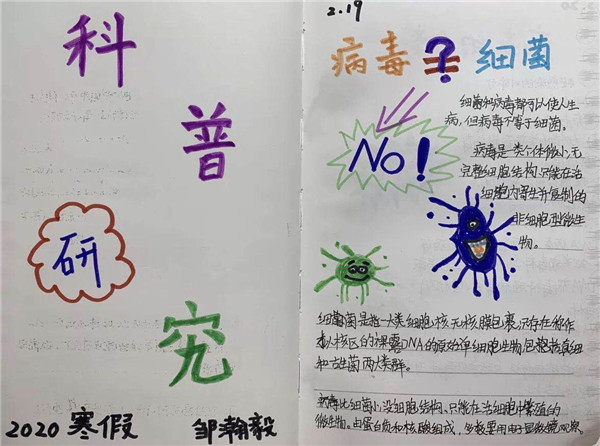 科
普
研
究
2020 寒假
邹瀚毅
2.19
病毒 ? = 细菌
No!
细菌和病毒都可以使人生
病,但病毒不等于细菌。
病毒是一类个体微小,无
完整细胞结构,只能在活
细胞内寄生并复制的
非细胞型微生
物。
细菌是指一大类细胞核无核膜包裹,只存在称作
拟核区的裸露DNA的原始单细胞生物,包括真细
和古生菌两大类群。
病毒比细菌小,没细胞结构,只能在活细胞中繁殖的
微生物。由蛋白质和核酸组成,多数要用电子显微镜观察。